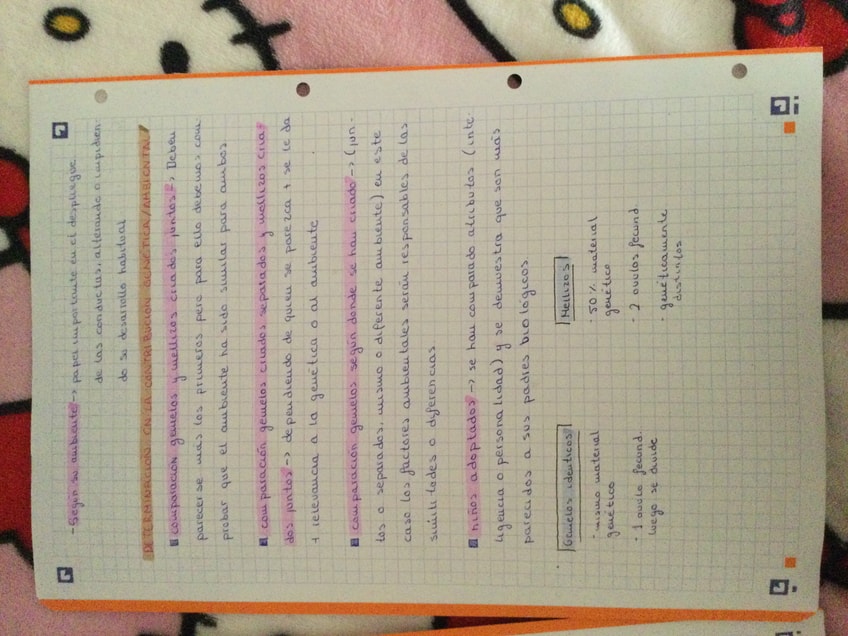 - Según su ambiente → papel importante en el despliegue
de las conductas, alterando o impidien-
do se desarrollo habitual
DETERMINACIÓN EN LA CONTRIBUCIÓN GENÉTICA/AMBIENTAL
comparación gemelos y mellizos criados juntos → Deben
parecerse más los primeros pero para ello debemos com-
probar que el ambiente ha sido similar para ambos
comparación gemelos criados separados y mellizos cria-
dos juntos → dependiendo de quien se parezca + se le da
+ relevancia a la genética o al ambiente
comparación gemelos según donde se han criado → (jun-
tos o separados, mismo o diferente ambiente) en este
caso los factores ambientales serán responsables de las
similitudes o diferencias
niños adoptados → se han comparado atributos (inte-
ligencia o personalidad) y se demuestra que son más
parecidos a sus padres biológicos
Gemelos idénticos
· mismo material
genético
· 1 ovulo fecund.
luego se divide
Mellizos
· 50% material
genético
· 2 ovulos fecund.
· genéticamente
distintos